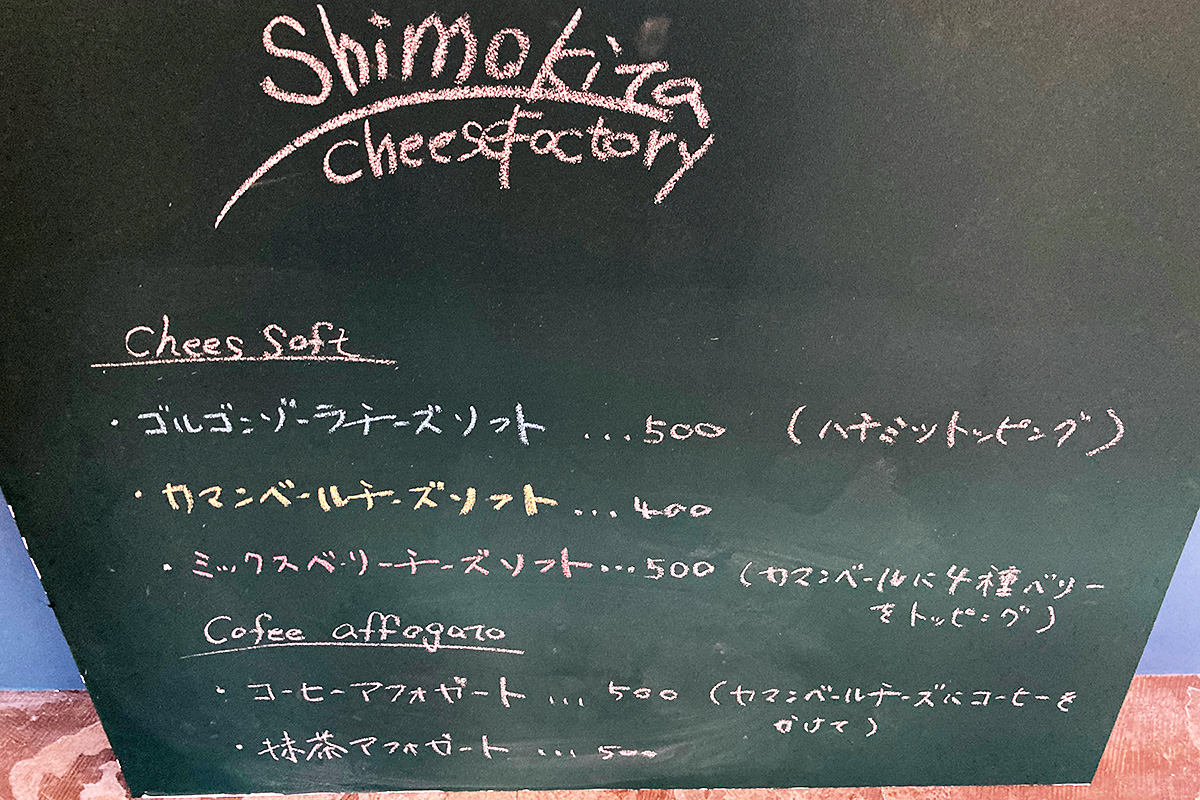 Shimokita
cheesefactory
Chees Soft
・ゴルゴンゾーラチーズソフト ...500 (ハチミツトッピング)
・カマンベールチーズソフト ...400
・ミックスベリーチーズソフト...500 (カマンベールに4種ベリー
をトッピング)
Cofee affogato
・コーヒーアフォガート ... 500 (カマンベールチーズにコーヒーを
かけて)
・抹茶アフォガート ... 500